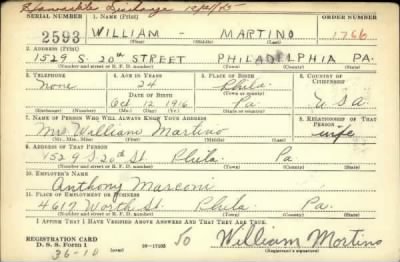 Honorable Discharge 12/21/45
SERIAL NUMBER 1. NAME (Print) ORDER NUMBER
2593 WILLIAM - MARTINO 1766
(First) (Middle) (Last)
2. ADDRESS (Print)
1529 S 20th STREET PHILADELPHIA PA.
(Number and street or R. F. D. number) (Town) (County) (State)
3. TELEPHONE 4. AGE IN YEARS 5. PLACE OF BIRTH 6. COUNTRY OF CITIZENSHIP
None 24 Phila.
DATE OF BIRTH (Town or county)
Oct 12 1916 Pa. U S A
(Mo.) (Day) (Yr.) (State or country)
7. NAME OF PERSON WHO WILL ALWAYS KNOW YOUR ADDRESS 8. RELATIONSHIP OF THAT PERSON
Mrs William Martino wife
(Mr., Mrs., Miss) (First) (Middle) (Last)
9. ADDRESS OF THAT PERSON
1529 S 20th St. Phila. Pa
(Number and street or R. F. D. number) (Town) (County) (State)
10. EMPLOYER'S NAME
Anthony Marconi
11. PLACE OF EMPLOYMENT OR BUSINESS
4617 Worth St. Phila. Pa.
(Number and street or R. F. D. number) (Town) (County) (State)
I AFFIRM THAT I HAVE VERIFIED ABOVE ANSWERS AND THAT THEY ARE TRUE.
REGISTRATION CARD
D. S. S. Form 1 (over) 16-17105 50 William Martino
36-10 (Registrant's signature)